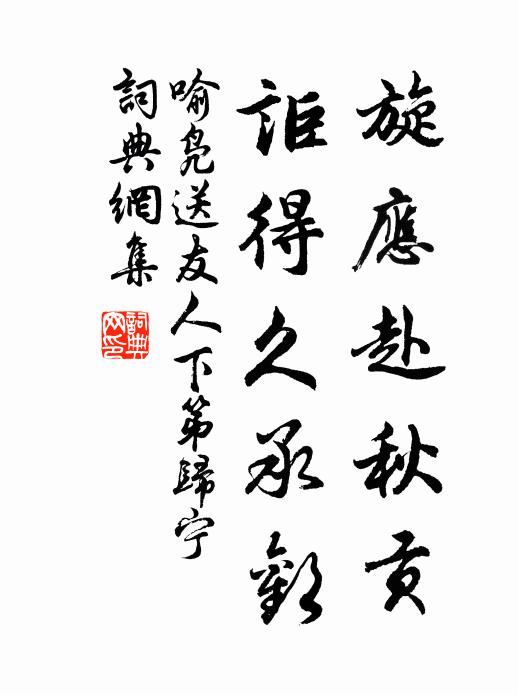 旋應赴秋貢
詎得久承歡
喻鳧送友人下第歸宁
詞典網集
詞典
网印